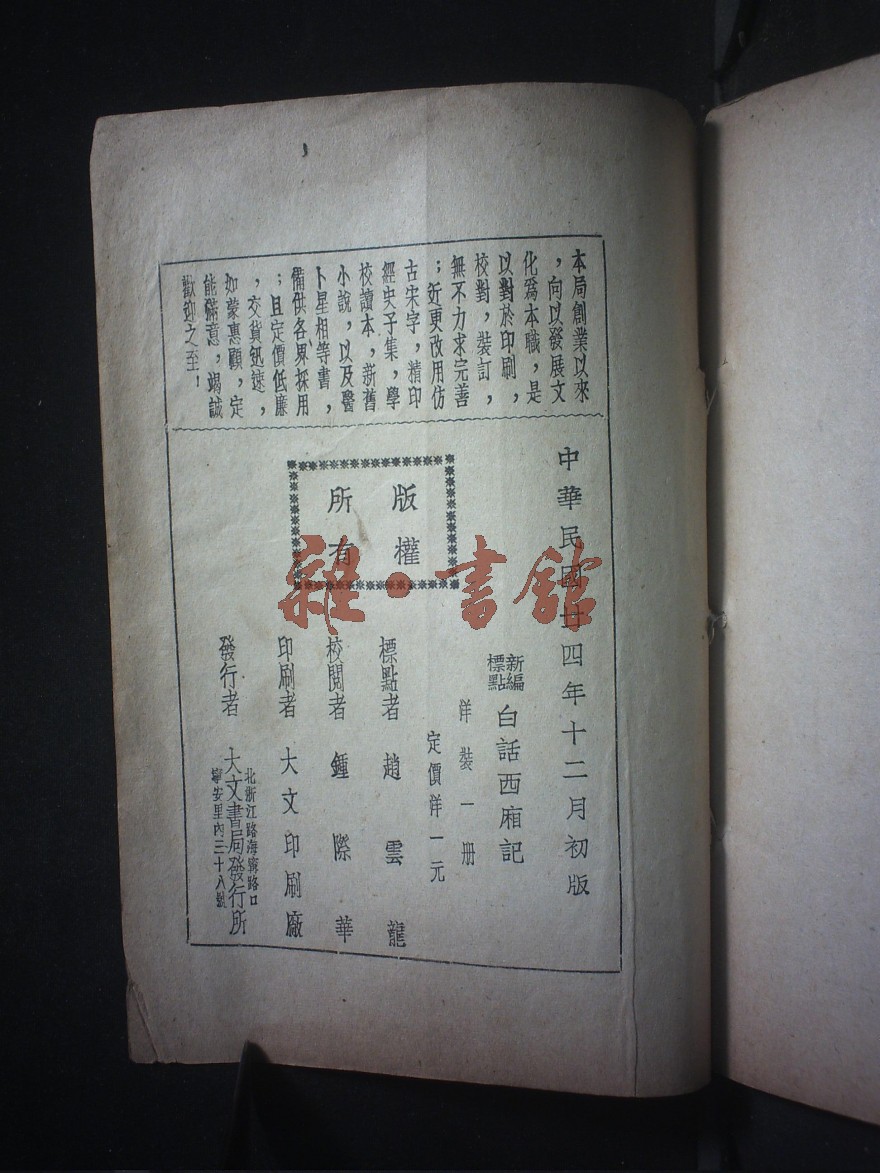 本局創業以來
，向以發展文
化爲本職，是
以對於印刷，
校對，裝訂，
無不力求完善
；近更改用仿
古宋字，精印
經史子集，學
校讀本，新舊
小說，以及醫
卜星相等書，
備供各界採用
；且定價低廉
，交貨迅速，
如蒙惠顧，定
能滿意，竭誠
歡迎之至！
中華民國廿四年十二月初版
新編
標點
白話西廂記
洋裝一册
定價洋一元
版權
所有
標點者 趙雲龍
校閱者 鍾際華
印刷者 大文印刷廠
發行者 大文書局發行所
北浙江路海寧路口
寧安里內三十八號
雜·書館